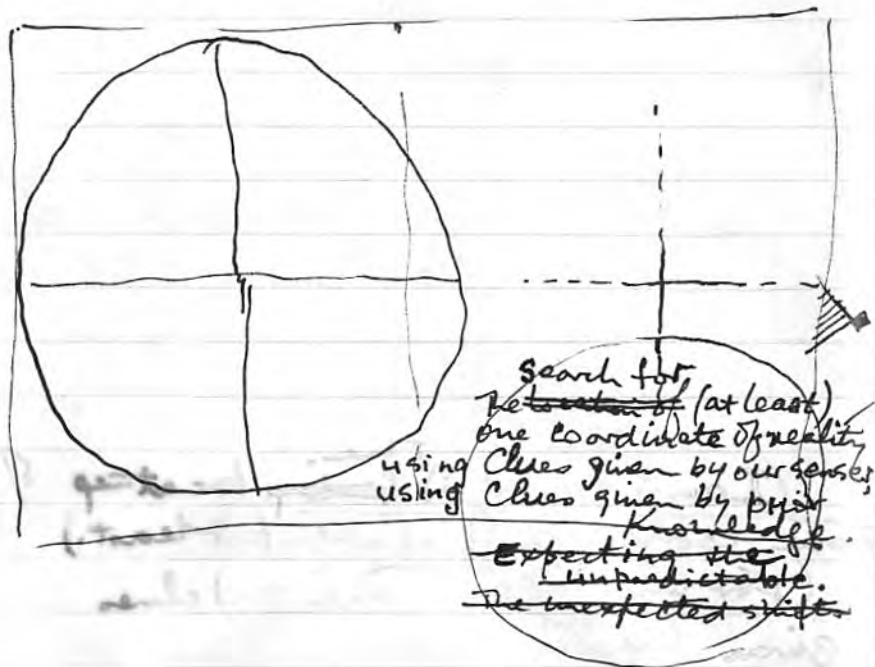 Search for
The location of (at least)
one coordinate of reality
using Clues given by our senses,
using Clues given by prior
Knowledge.
Expecting the
unpredictable.
The unexpected shifts